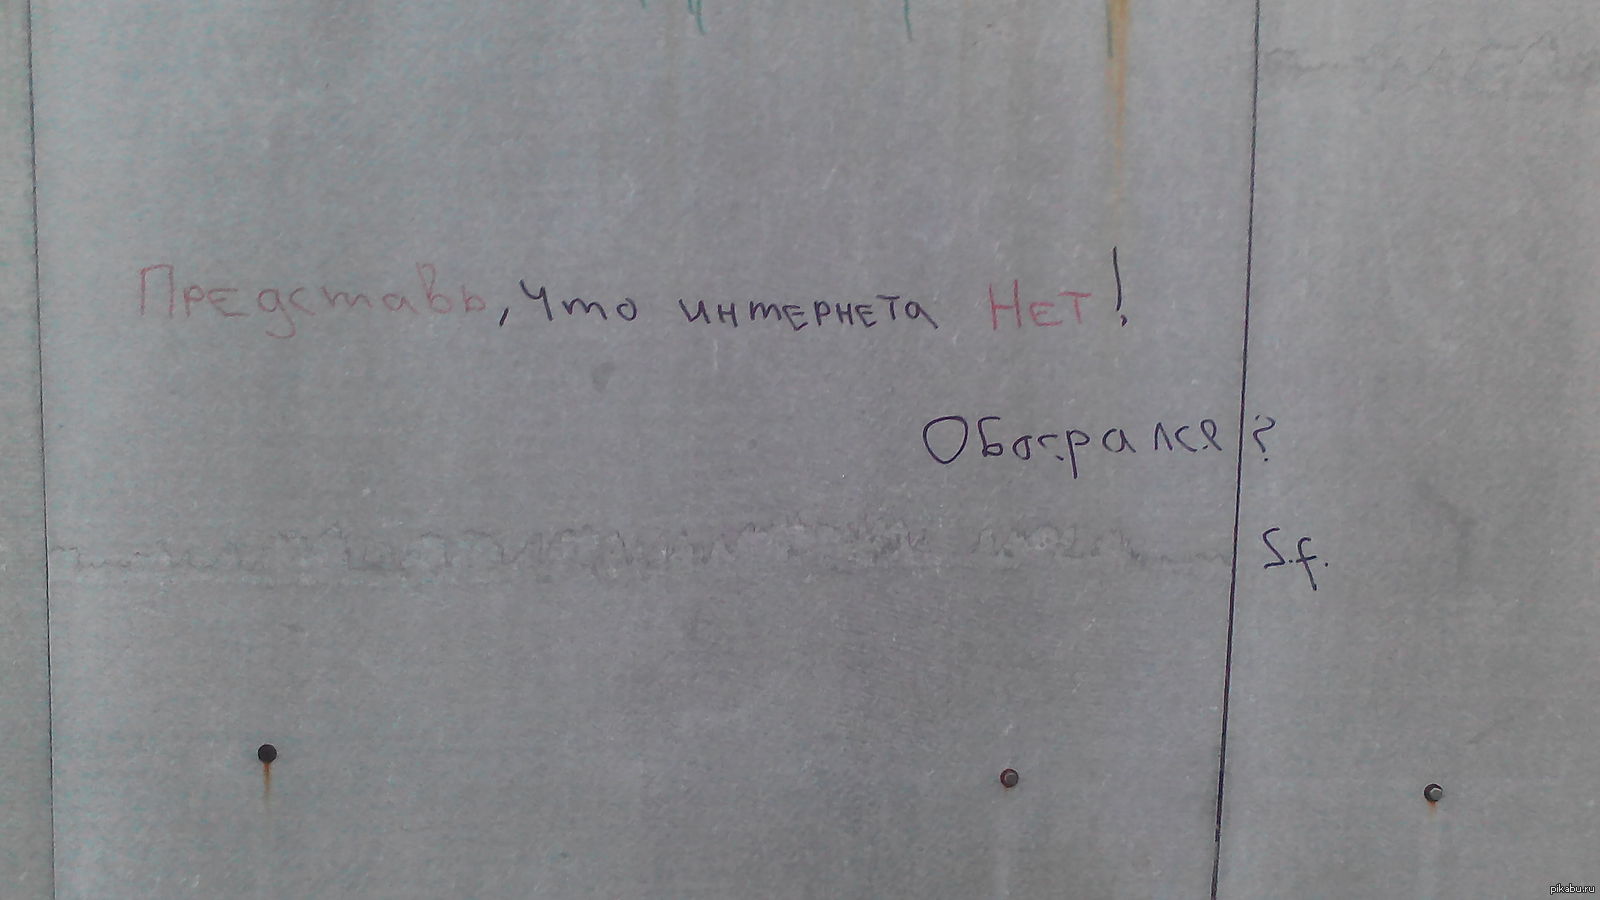 Представь, что интернета Нет!
Обосрался?
S.f.
pikabu.ru